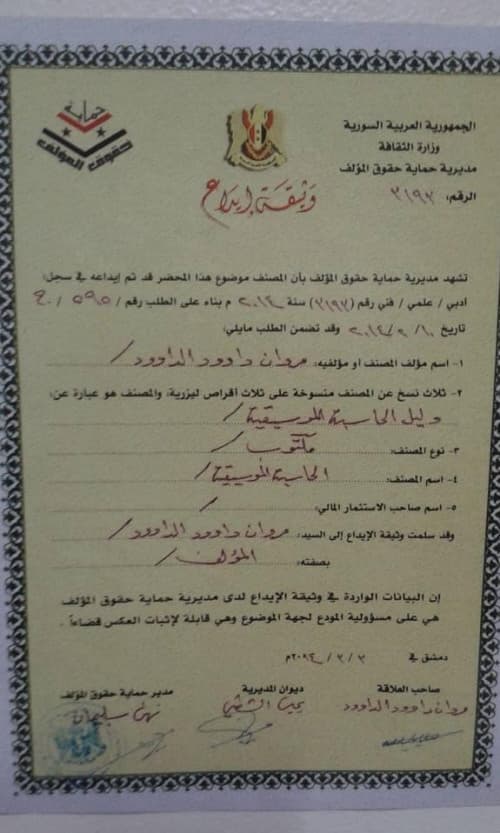 حماية
حقوق المؤلف
الجمهورية العربية السورية
وزارة الثقافة
مديرية حماية حقوق المؤلف
الرقم: ٣١٩٣
وثيقة إيداع
تشهد مديرية حماية حقوق المؤلف بأن المصنف موضوع هذا المحضر قد تم إيداعه في سجل:
أدبي / علمي / فني رقم (٣١٩٣) سنة ٢٠١٤ م بناء على الطلب رقم / ٥٩٥ /
تاريخ ١٠ / ٢ / ٢٠١٤ وقد تضمن الطلب مايلي:
١- اسم مؤلف المصنف أو مؤلفيه: مروان داوود الداوود /
٢- ثلاث نسخ عن المصنف منسوخة على ثلاث أقراص ليزرية، والمصنف هو عبارة عن:
دليل الحاسبة الموسيقية /
٣- نوع المصنف: مكتوب /
٤- اسم المصنف: الحاسبة الموسيقية /
٥- اسم صاحب الاستثمار المالي: /
وقد سلمت وثيقة الإيداع إلى السيد: مروان داوود الداوود /
بصفته: المؤلف /
إن البيانات الواردة في وثيقة الإيداع لدى مديرية حماية حقوق المؤلف
هي على مسؤولية المودع لجهة الموضوع وهي قابلة لإثبات العكس قضاءاً.
دمشق في ٣ / ٣ / ٢٠١٤م
صاحب العلاقة ديوان المديرية مدير حماية حقوق المؤلف
مروان داوود الداوود سليمان